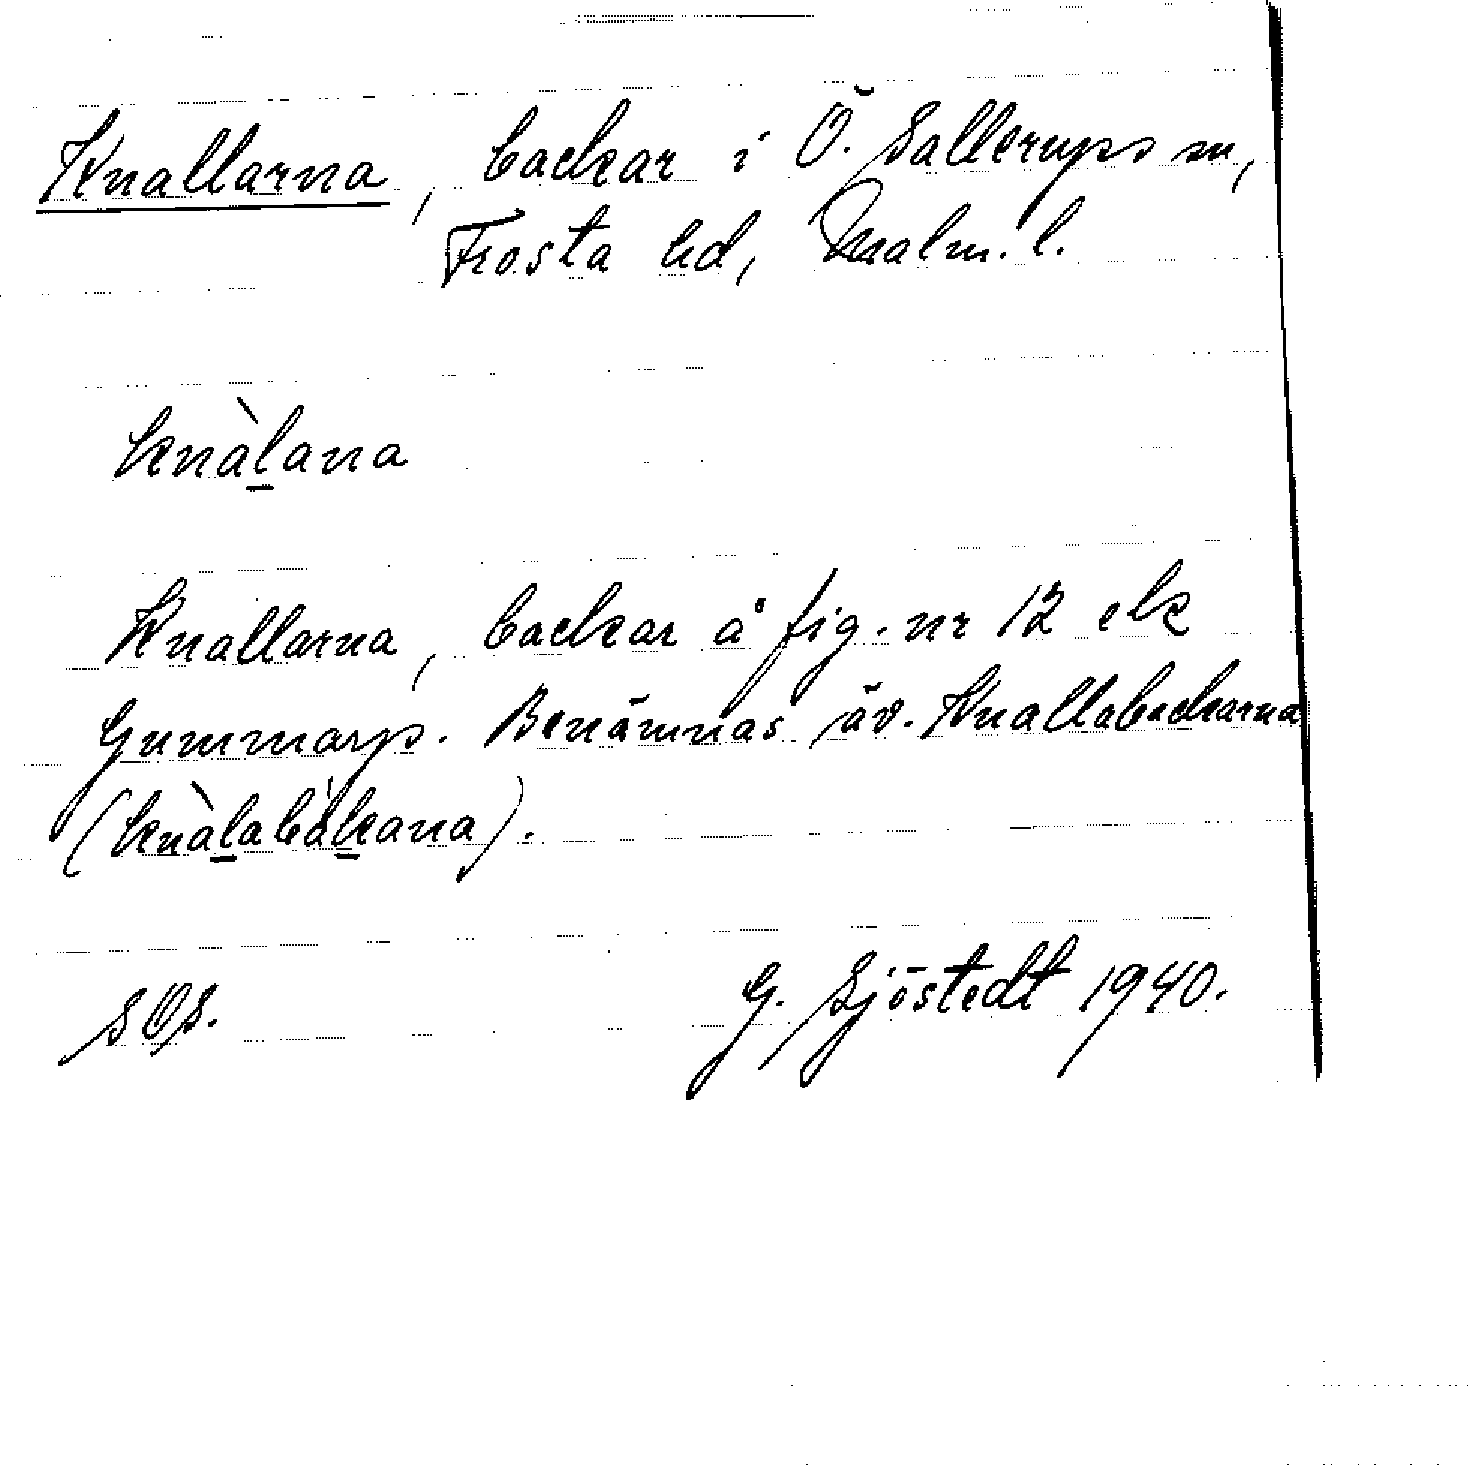 Knallarna, backar i Ö. Sallerups sn,
Frosta hd, Malm. l.
knàl̲ana
Knallarna, backar å fig. nr 12 ek
Gummarp. Benämnas äv. Knallabackarna
(knàl̲abàk̲ana).
sOs. G. Sjöstedt 1940.